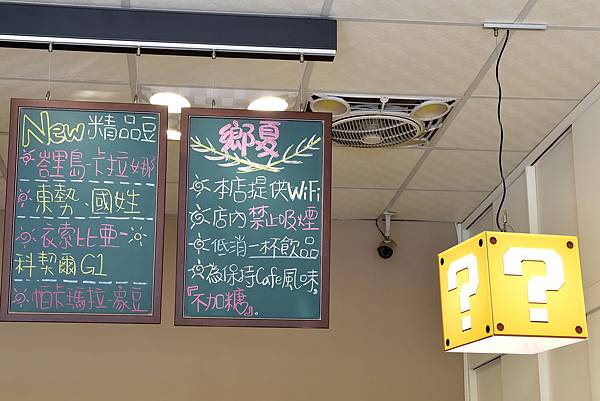 New 精品豆
峇里島 卡拉娜
東勢、國姓
衣索比亞-
科契爾G1
帕卡瑪拉-象豆
鄉夏
本店提供WiFi
店內禁止吸煙
低消一杯飲品
為保持Cafe風味,
『不加糖』。
?
?